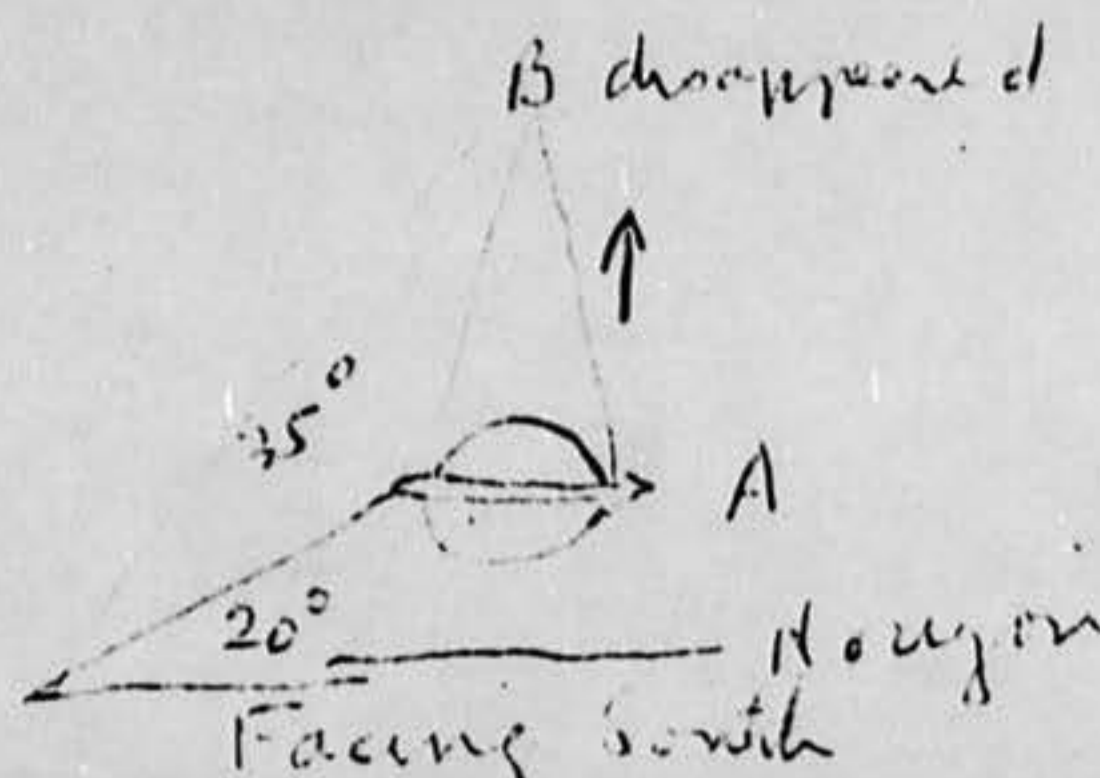 B disappeared
35°
A
20°
Horizon
Facing South